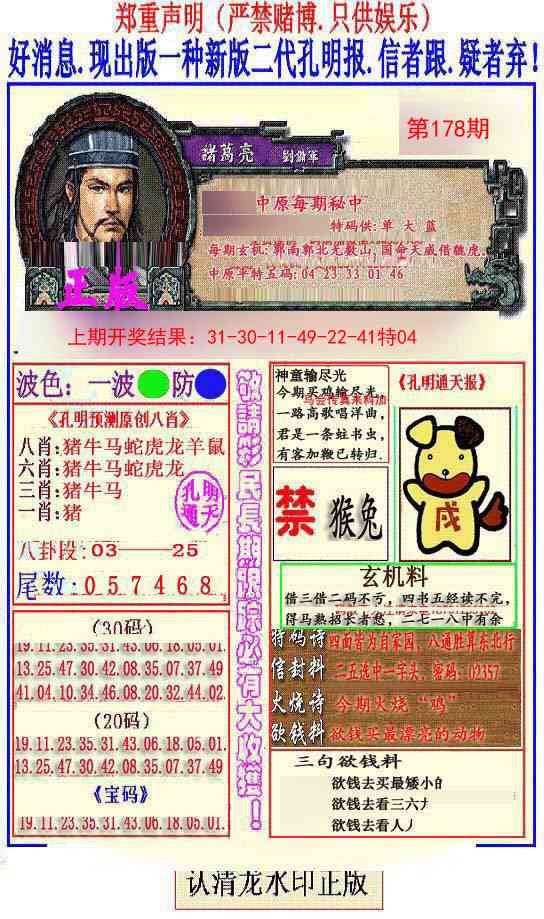 郑重声明（严禁赌博.只供娱乐）
好消息.现出版一种新版二代孔明报.信者跟.疑者弃！
第178期
諸葛亮
中原每期秘中
特码供:单 大 蓝
每期玄机:郭南郭北无数山,国命天威借虢虎.
中原平特五码:04 23 33 01 46
正版
上期开奖结果：31-30-11-49-22-41特04
波色：一波 防
《孔明预测原创八肖》
八肖:猪牛马蛇虎龙羊鼠
六肖:猪牛马蛇虎龙
三肖:猪牛马
一肖:猪
孔明
通天
八卦段:03——25
尾数:057468
(30码)
19.11.23.35.31.43.06.18.05.01.
13.25.47.30.42.08.35.07.37.49
41.04.10.34.46.08.20.32.44.02
(20码)
19.11.23.35.31.43.06.18.05.01.
13.25.47.30.42.08.35.07.37.49
《宝码》
19.11.23.35.31.43.06.18.05.01.
敬請彩民長期跟踪必有大收獲！
神童输尽光
今期买鸡输尽光
一路高歌唱洋曲,
君是一条蛀书虫,
有客加鞭已转归.
禁 猴兔
《孔明通天报》
戌
玄机料
借三借二码不亏，四书五经读不完,
得马熟招长者愁，二七一八中有余
特码诗 四面皆为自家园，八通胜算东北行
信封料 二五选中一字头，密码：02357
火烧诗 今期火烧“鸡”
欲钱料 欲钱买最漂亮的动物
三句欲钱料
欲钱去买最矮小的
欲钱去看三六
欲钱去看人
认清龙水印正版